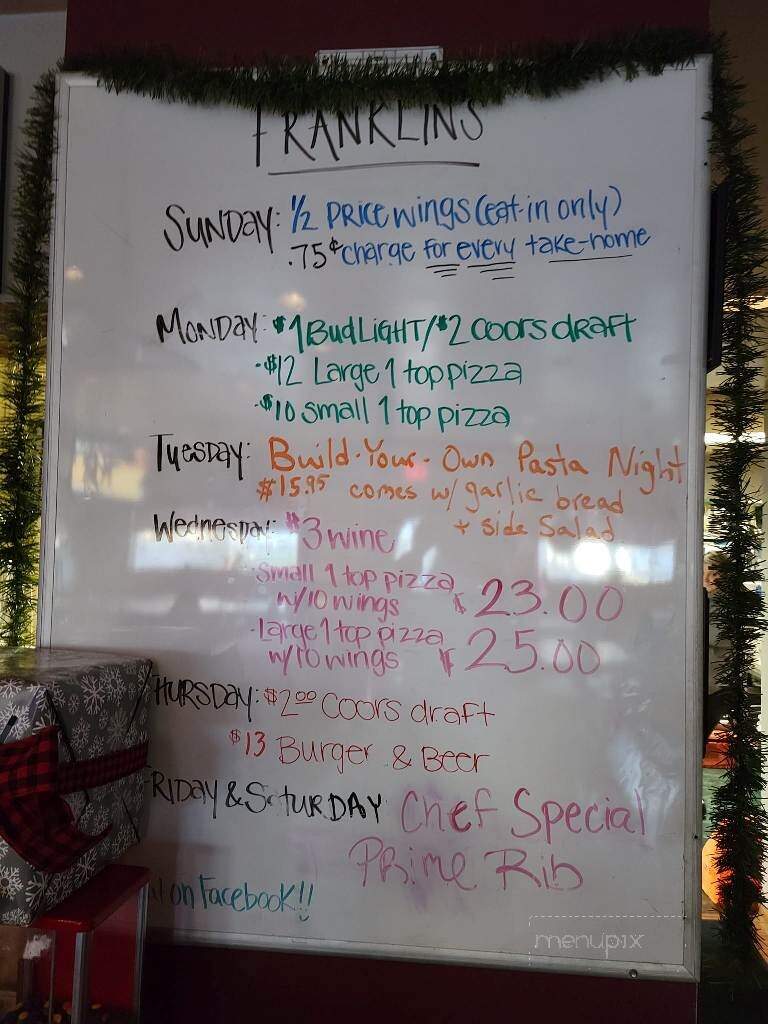 FRANKLINS
SUNDAY: 1/2 PRICE WINGS (eat-in only)
.75¢ charge for every take-home
MONDAY: $1 Bud LIGHT/$2 coors draft
-$12 Large 1 top pizza
-$10 small 1 top pizza
TUESDAY: Build-Your-Own Pasta Night
$15.95 comes w/ garlic bread
+ side Salad
Wednesday: $3 wine
-Small 1 top pizza
w/10 wings $23.00
-Large 1 top pizza
w/10 wings $25.00
THURSDAY: $2.00 Coors draft
$13 Burger & Beer
FRIDAY & SATURDAY Chef Special
Prime Rib
on Facebook!!
menupix